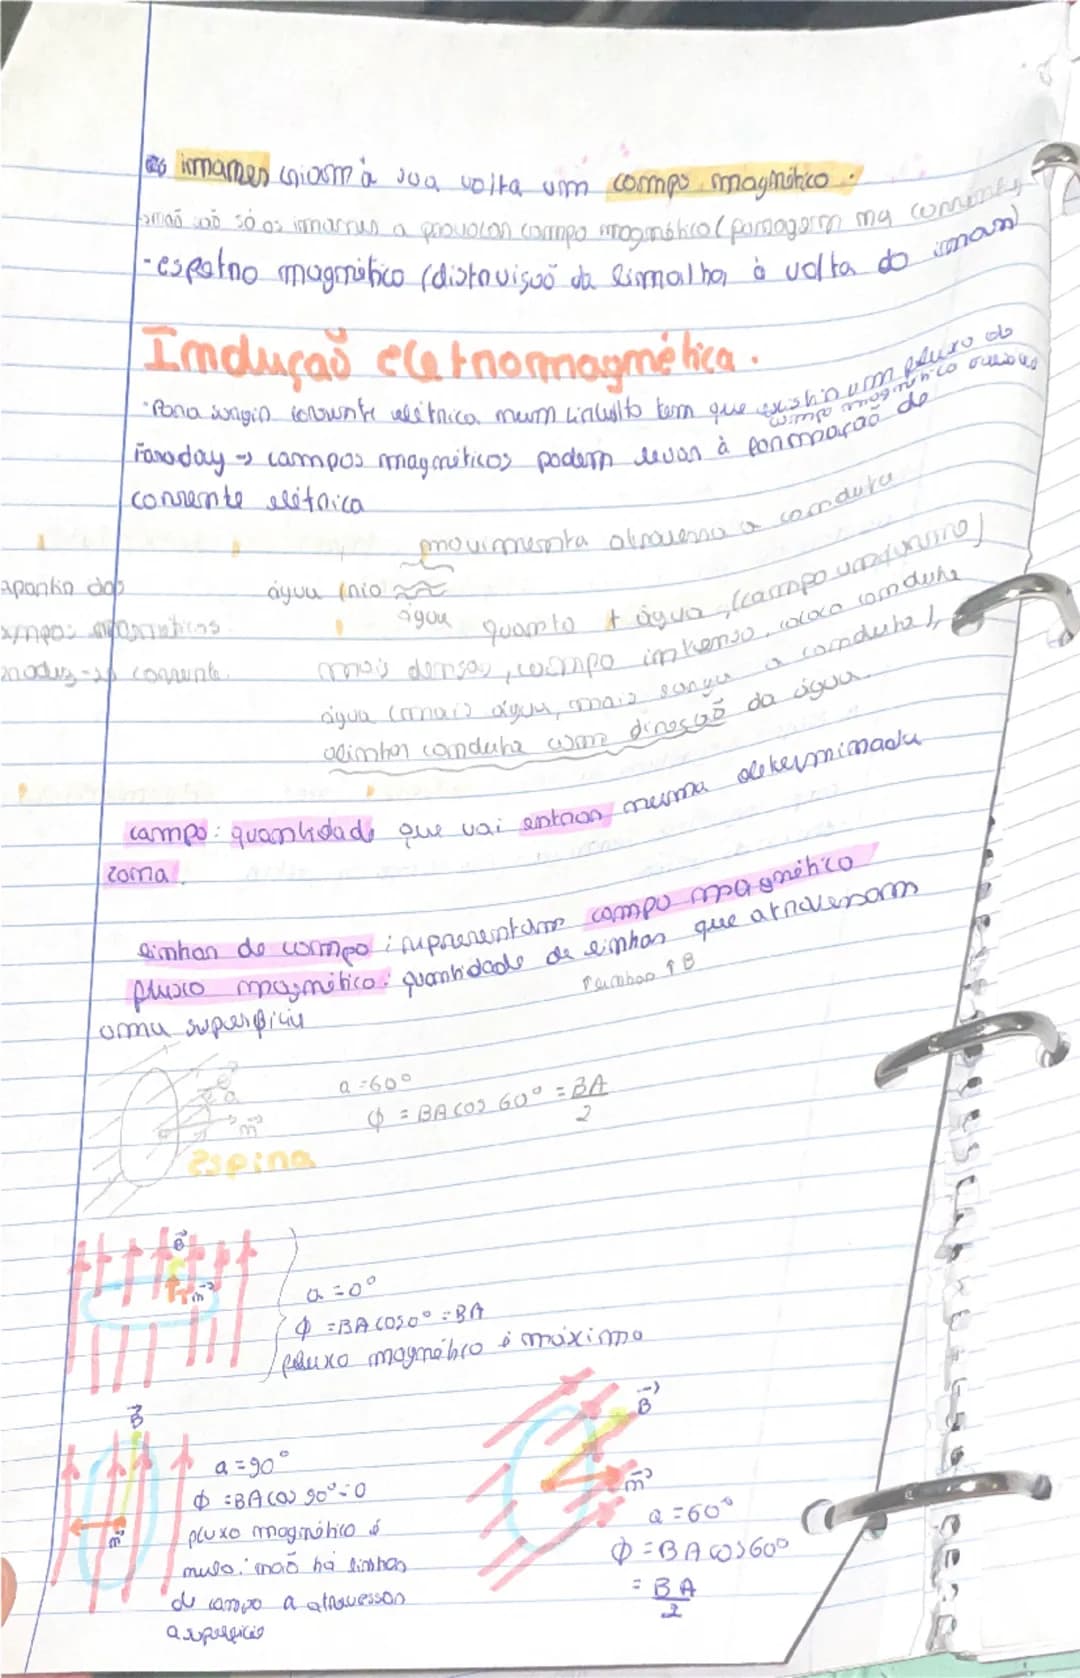 os imanes criam à sua volta um campo magnético.
não são só os imanes a provocar campo magnético (passagem na corrente)
- espetro magnético (distruisuõ da limalha à volta do iman)
Indução eletromagnética.
· Para surgir corrente elétrica num circuito tem que existir um fluxo do campo magnético
Faraday → campos magnéticos podem levar à formação de
corrente elétrica
movimenta atravessa a conduta
água (rio
água
apanho dos
campos magnéticos
produz-se corrente.
quanto + água, (campo uniforme)
mais densas, campo intenso, coloca conduta
água (mais água, mais surge a conduta),
alinhar conduta com direção da água.
campo: quantidade que vai entrar numa determinada
zona.
linhas de campo: representam campo magnético
fluxo magnético: quantidade de linhas que atravessam
↑ linhas ↑ B
uma superfície
a = 60°
ϕ = BA cos 60° = BA/2
espira
B
n
a = 0°
ϕ = BA cos 0° = BA
fluxo magnético é máximo
B
n
a = 90°
ϕ = BA cos 90° = 0
fluxo magnético é
nulo: não há linhas
de campo a atravessar
a superfície
B
n
a = 60°
ϕ = BA cos 60°
= BA/2